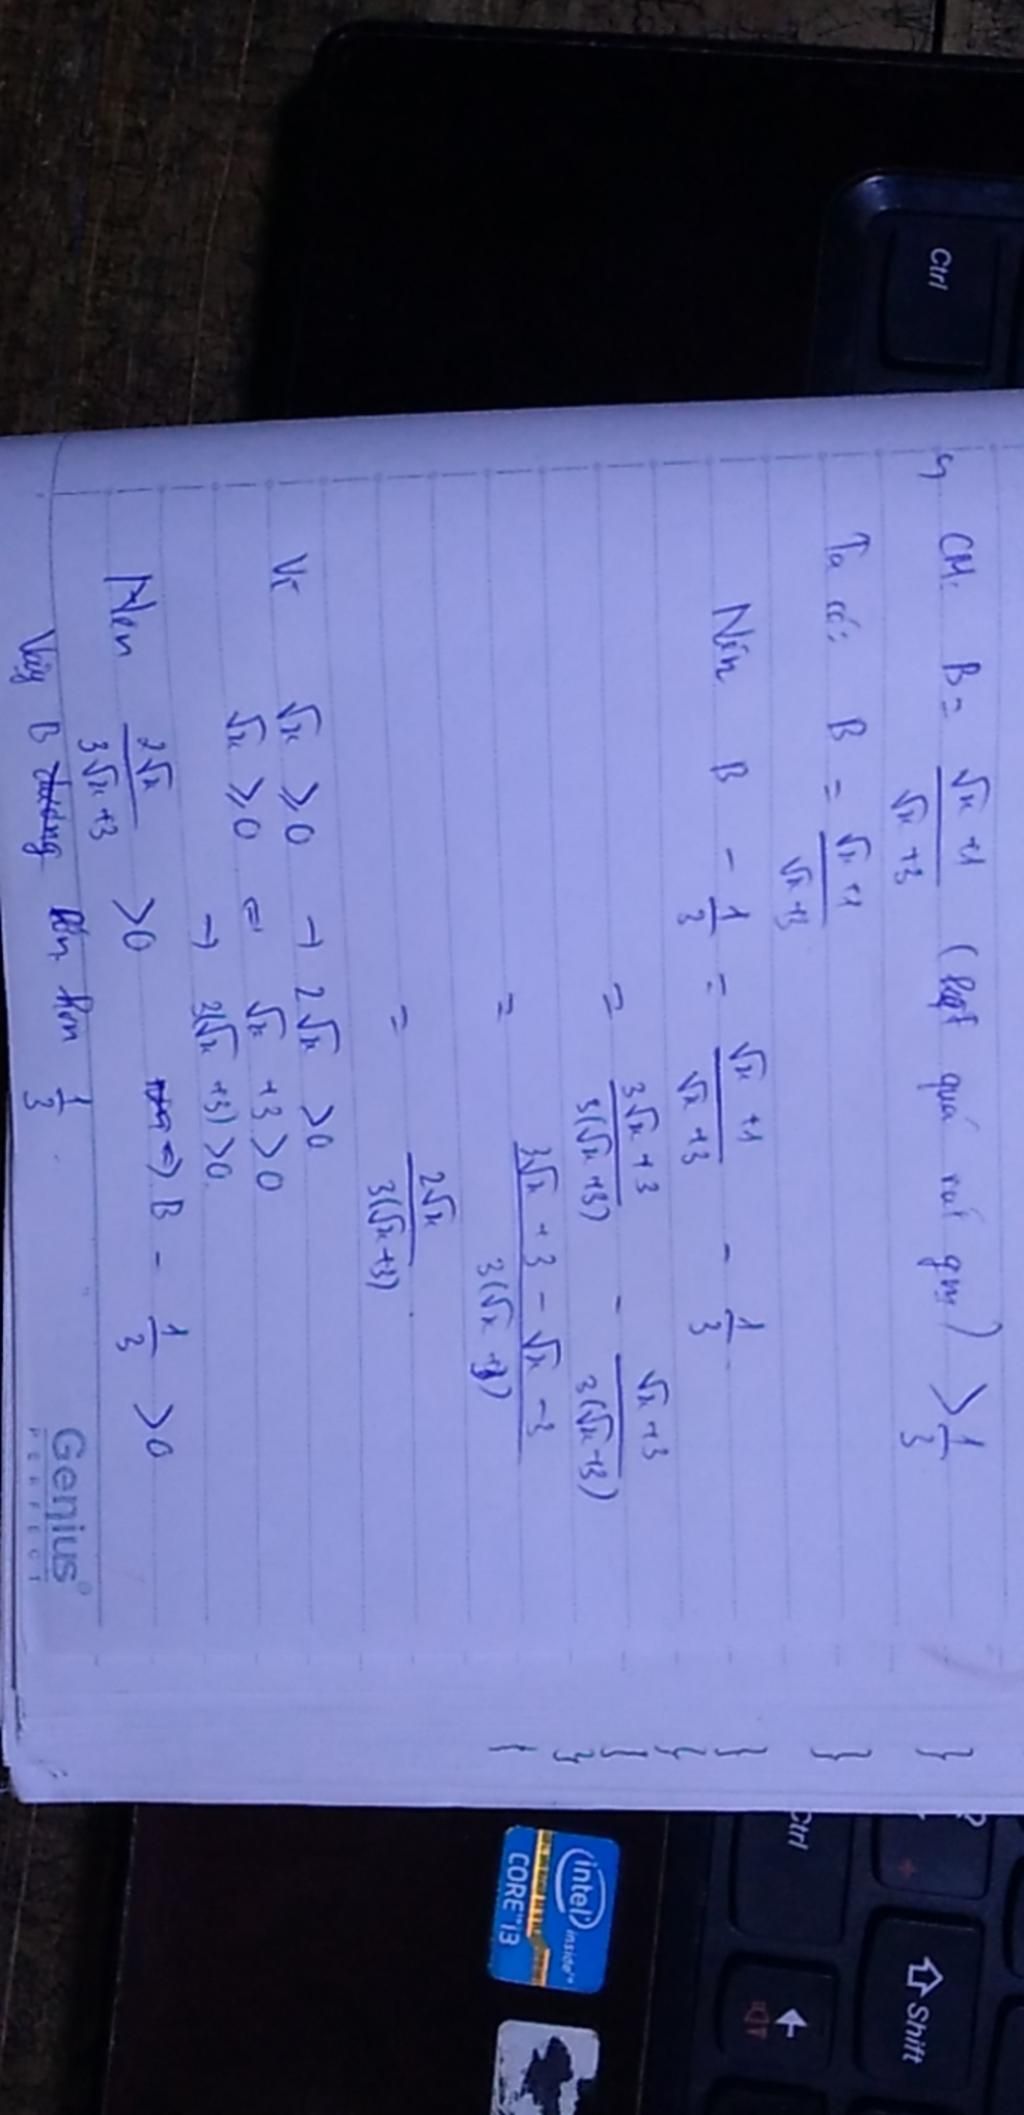 CM: B = \frac{\sqrt{x}+1}{\sqrt{x}+3} (kết quả rút gọn) > \frac{1}{3}
Ta có: B = \frac{\sqrt{x}+1}{\sqrt{x}+3}
Nên B - \frac{1}{3} = \frac{\sqrt{x}+1}{\sqrt{x}+3} - \frac{1}{3}
= \frac{3\sqrt{x}+3}{3(\sqrt{x}+3)} - \frac{\sqrt{x}+3}{3(\sqrt{x}+3)}
= \frac{3\sqrt{x}+3-\sqrt{x}-3}{3(\sqrt{x}+3)}
= \frac{2\sqrt{x}}{3(\sqrt{x}+3)}
Vì \sqrt{x} ≥ 0 → 2\sqrt{x} > 0
\sqrt{x} ≥ 0 ⇒ \sqrt{x} + 3 > 0
→ 3(\sqrt{x}+3) > 0
Nen \frac{2\sqrt{x}}{3\sqrt{x}+3} > 0 ⇒ B - \frac{1}{3} > 0
Vậy B lớn hơn \frac{1}{3}
Genius
PERFECT
Ctrl
Ctrl
?
Shift
intel inside
CORE i3